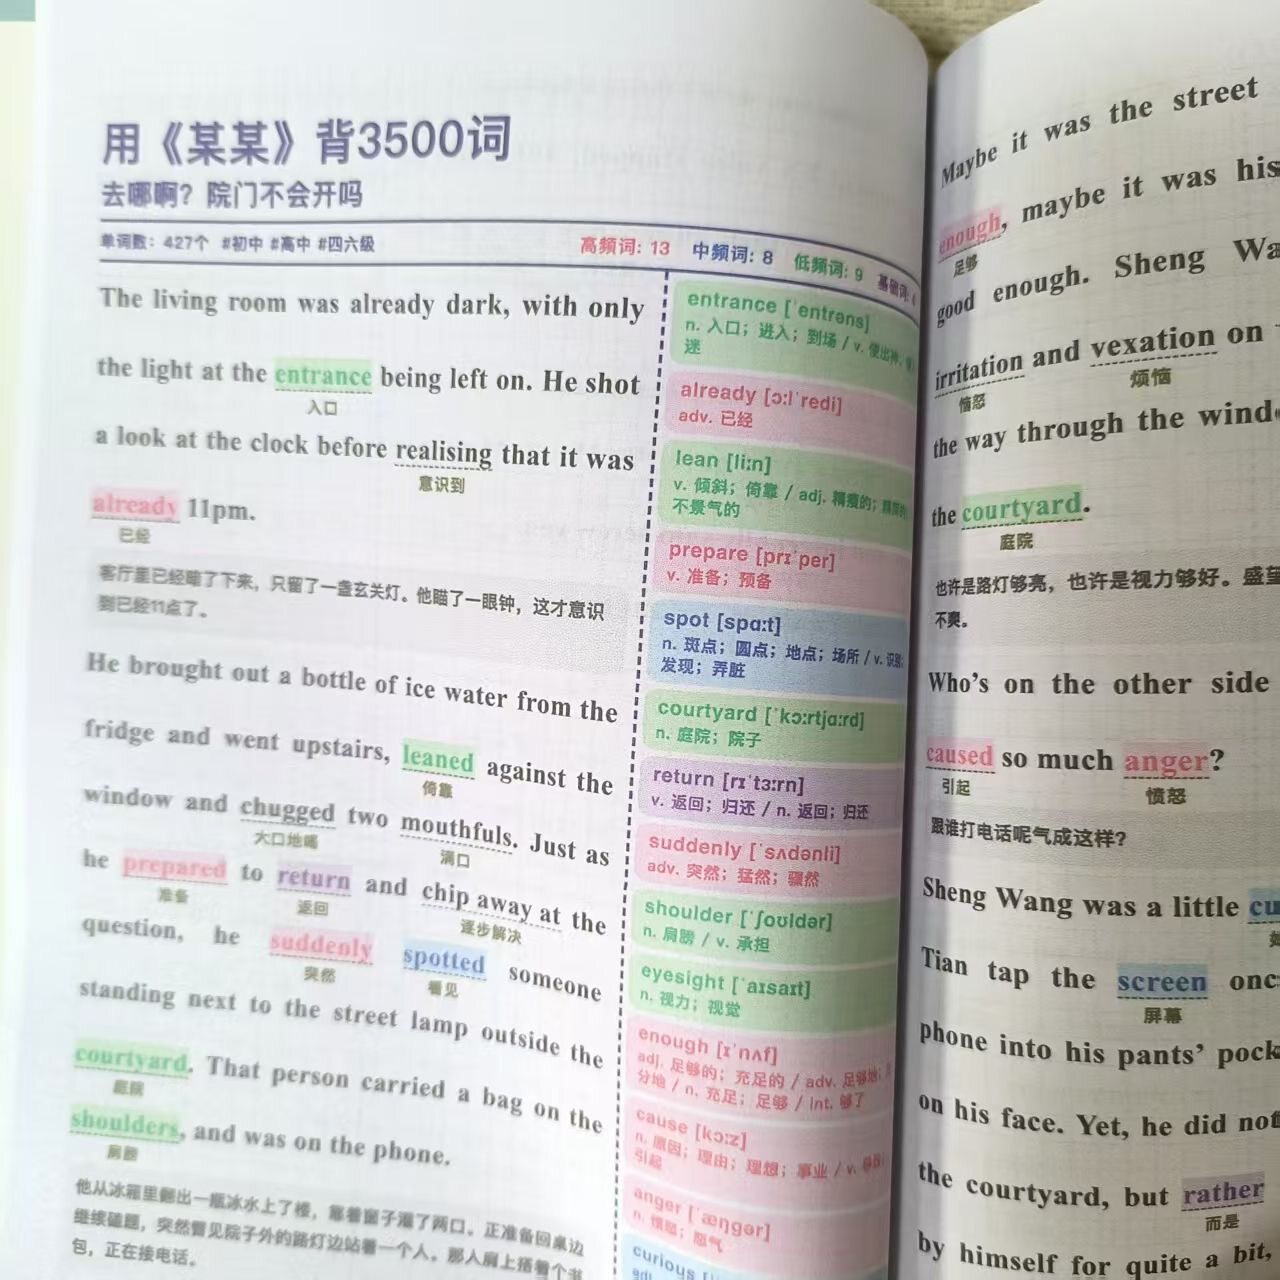 用《某某》背3500词
去哪啊？院门不会开吗
单词数：427个 #初中 #高中 #四六级
高频词: 13 中频词: 8 低频词: 9 基础词:
The living room was already dark, with only
the light at the entrance being left on. He shot
入口
a look at the clock before realising that it was
意识到
already 11pm.
已经
客厅里已经暗了下来，只留了一盏玄关灯。他瞄了一眼钟，这才意识
到已经11点了。
He brought out a bottle of ice water from the
fridge and went upstairs, leaned against the
倚靠
window and chugged two mouthfuls. Just as
大口地喝 满口
he prepared to return and chip away at the
准备 返回 逐步解决
question, he suddenly spotted someone
突然 看见
standing next to the street lamp outside the
courtyard. That person carried a bag on the
庭院
shoulders, and was on the phone.
肩膀
他从冰箱里翻出一瓶冰水上了楼，靠着窗子灌了两口。正准备回桌边
继续磕题，突然瞥见院子外的路灯边站着一个人。那人肩上搭着个书
包，正在接电话。
entrance [ˈentrəns]
n. 入口；进入；到场 / v. 使出神；
迷
already [ɔːlˈredi]
adv. 已经
lean [liːn]
v. 倾斜；倚靠 / adj. 精瘦的；
不景气的
prepare [prɪˈper]
v. 准备；预备
spot [spɑːt]
n. 斑点；圆点；地点；场所 / v. 识别；
发现；弄脏
courtyard [ˈkɔːrtjɑːrd]
n. 庭院；院子
return [rɪˈtɜːrn]
v. 返回；归还 / n. 返回；归还
suddenly [ˈsʌdənli]
adv. 突然；猛然；骤然
shoulder [ˈʃoʊldər]
n. 肩膀 / v. 承担
eyesight [ˈaɪsaɪt]
n. 视力；视觉
enough [ɪˈnʌf]
adj. 足够的；充足的 / adv. 足够地；
分地 / n. 充足；足够 / int. 够了
cause [kɔːz]
n. 原因；理由；理想；事业 / v.
引起
anger [ˈæŋɡər]
n. 愤怒；怒气
curious
Maybe it was the street
enough, maybe it was his
足够
good enough. Sheng Wa
irritation and vexation on
恼怒 烦恼
the way through the wind
the courtyard.
庭院
也许是路灯够亮，也许是视力够好。盛望
不爽。
Who's on the other side
caused so much anger?
引起 愤怒
跟谁打电话呢气成这样？
Sheng Wang was a little cu
Tian tap the screen onc
屏幕
phone into his pants' pock
on his face. Yet, he did not
the courtyard, but rather
而是
by himself for quite a bit,